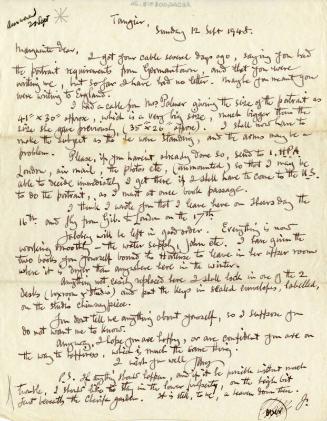 answered
20 Sept
Tangier,
Sunday 12 Sept 1948.
Marguerite dear,
I got your cable several days ago, saying you had
the portrait requirements from Germantown and that you were
writing me, but so far I have had no letter. Maybe you meant you
were writing to England.
I had a cable from Mrs Palmer giving the size of the portrait as
45" x 30" approx, which is a very big size, much bigger than the
size she gave previously, (35" x 26" approx). I shall now have to
make the subject as tho he were standing, and the arms may be a
problem. Please, if you haven't already done so, send to 1. HPA
London, air mail, the photos etc, (unmounted) so that I may be
able to decide immediately I get there if I shall have to come to the U.S.
to do the portrait, as I must at once book passage.
I think I wrote you that I leave here on Thursday the
16th and fly from Gib. to London on the 17th
will be left in good order. Everything is now
working smooth - the water supply, John etc. I have given the
two books you yourself bound to Hortense to leave in her upper rooms
where it is dryer than anywhere here in the winter.
Anything not easily replaced here I shall lock in one of the 2
desks and put the keys in sealed envelopes, labelled,
on the studio chimneypiece.
You don't tell me anything about yourself, so I suppose you
do not want me to know.
Anyway, I hope you are happy, or are confident you are on
the way to happiness, which is much the same thing.
I wish you well, Thy
P.S. If anything should happen, and it be possible without much
trouble, I should like to lie in the lower property, on the high bit
just beneath the